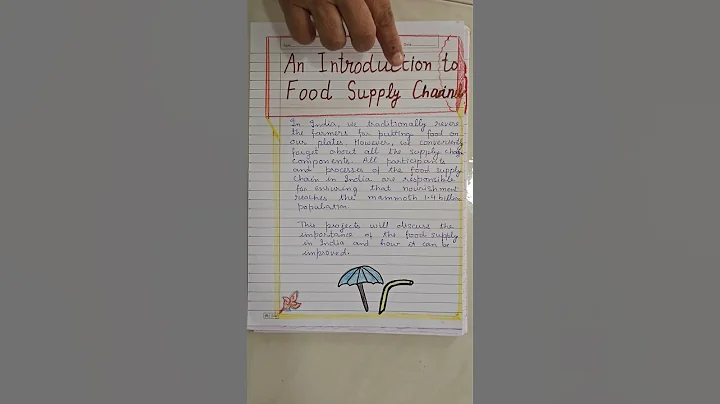 An Introduction to
Food Supply Chain
In India, we traditionally revere
the farmers for putting food on
our plates. However, we conveniently
forget about all the supply chain
components. All participants
and processes of the food supply
chain in India are responsible
for ensuring that nourishment
reaches the mammoth 1.4 billion
population.
This projects will discuss the
importance of the food supply
in India and how it can be
improved.